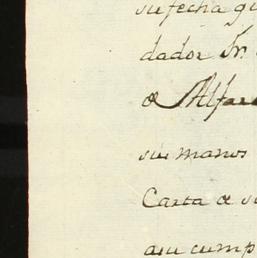 su fecha
dador Sn.
de Alfa
sus manos
Carta de su
asu cump